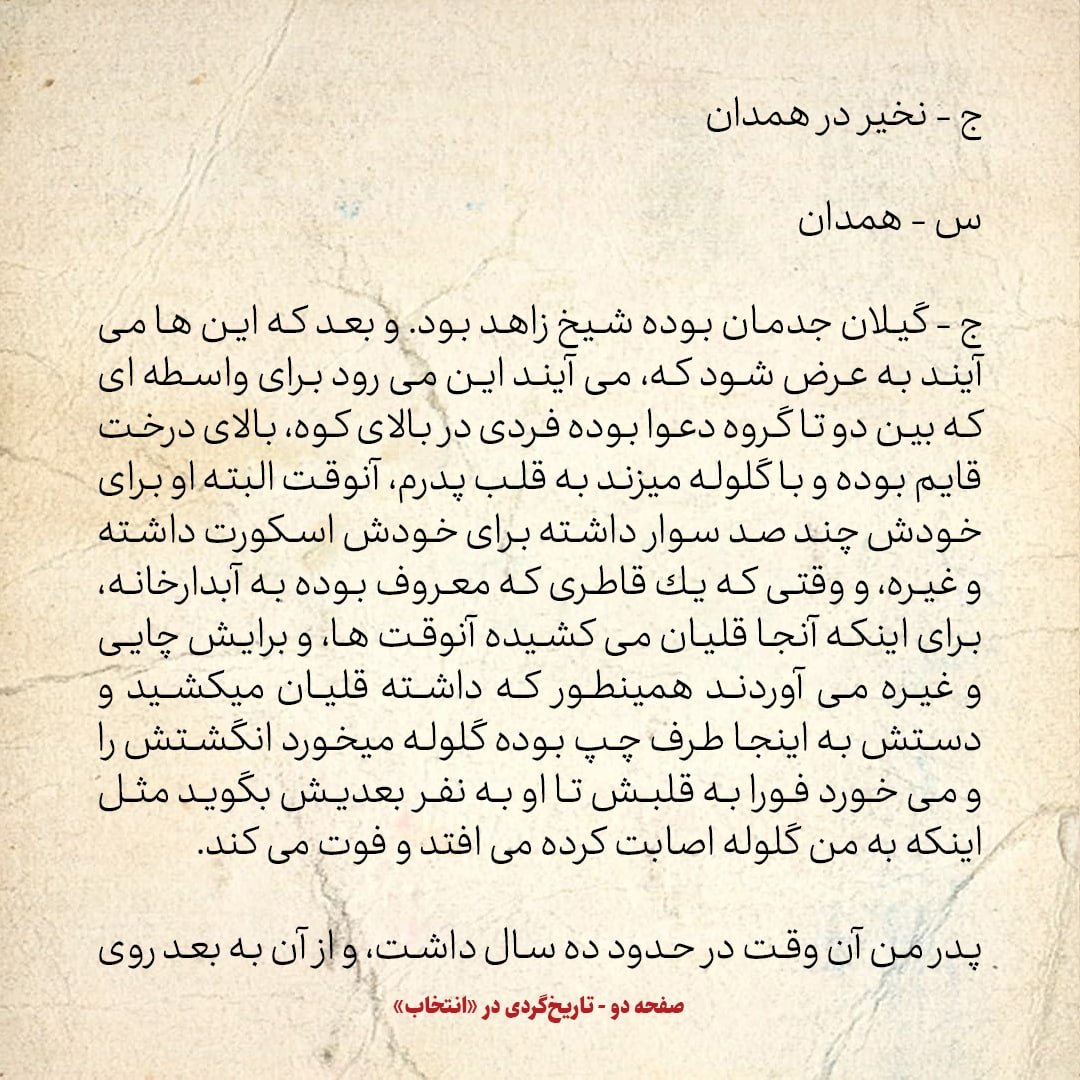 ج - نخیر در همدان
س - همدان
ج - گیلان جدمان بوده شیخ زاهد بود. و بعد که این ها می
آیند به عرض شود که، می آیند این می رود برای واسطه ای
که بین دو تا گروه دعوا بوده فردی در بالای کوه، بالای درخت
قایم بوده و با گلوله میزند به قلب پدرم، آنوقت البته او برای
خودش چند صد سوار داشته برای خودش اسکورت داشته
و غیره، و وقتی که یك قاطری که معروف بوده به آبدارخانه،
برای اینکه آنجا قلیان می کشیده آنوقت ها، و برایش چایی
و غیره می آوردند همینطور که داشته قلیان میکشید و
دستش به اینجا طرف چپ بوده گلوله میخورد انگشتش را
و می خورد فورا به قلبش تا او به نفر بعدیش بگوید مثل
اینکه به من گلوله اصابت کرده می افتد و فوت می کند.
پدر من آن وقت در حدود ده سال داشت، و از آن به بعد روی
صفحه دو - تاریخ‌گردی در «انتخاب»